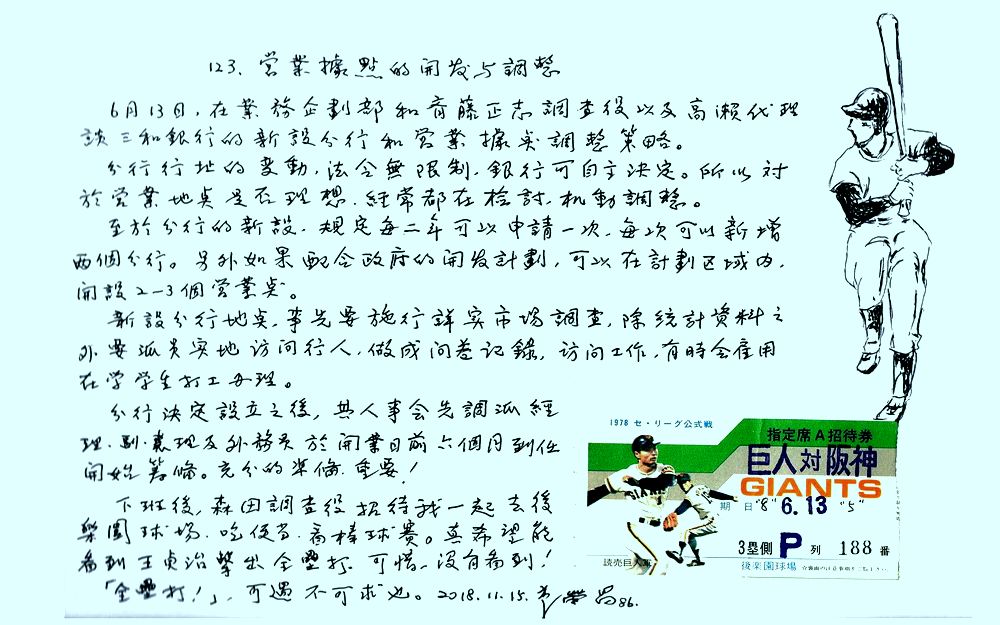 123. 営業據點的開发与調整
6月13日,在業務企劃部和斉藤正志調查役以及高瀨代理
談三和銀行的新設分行和営業據奌調整策略。
分行行址的变動,法令無限制,銀行可自主決定。所以対
於営業地奌是否理想,経常都在検討,机動調整。
至於分行的新設,規定每二年可以申請一次,每次可以新增
两個分行。另外如果配合政府的開发計劃,可以在計劃区域内,
開設2-3個営業奌。
新設分行地奌,事先要施行詳实市場調查,除統計資料之
外,要派员实地访问行人,做成问卷记錄,访问工作,有時会雇用
在学学生打工办理。
分行決定設立之後,其人事会先調派經
理、副、襄理及外務员於開業日前六個月到任
開始筹備。充分的準備,重要!
下班後,森田調查役招待我一起去後
樂園球場,吃便当,看棒球賽。真希望能
看到王贞治擊出全壘打,可惜,没有看到!
「全壘打!」,可遇不可求也。2018.11.15. 86.
1978 セ・リーグ公式戦
指定席A招待券
巨人対阪神
GIANTS
期日 "8" 6.13 "5"
3塁側 P 列 188 番
読売巨人軍
後楽園球場